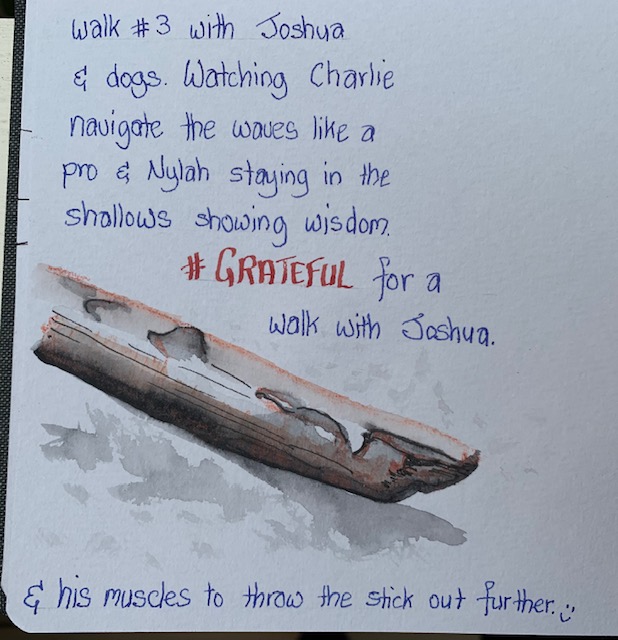 Walk #3 with Joshua
& dogs. Watching Charlie
navigate the waves like a
pro & Nylah staying in the
shallows showing wisdom.
# GRATEFUL for a
walk with Joshua.
& his muscles to throw the stick out further. :)